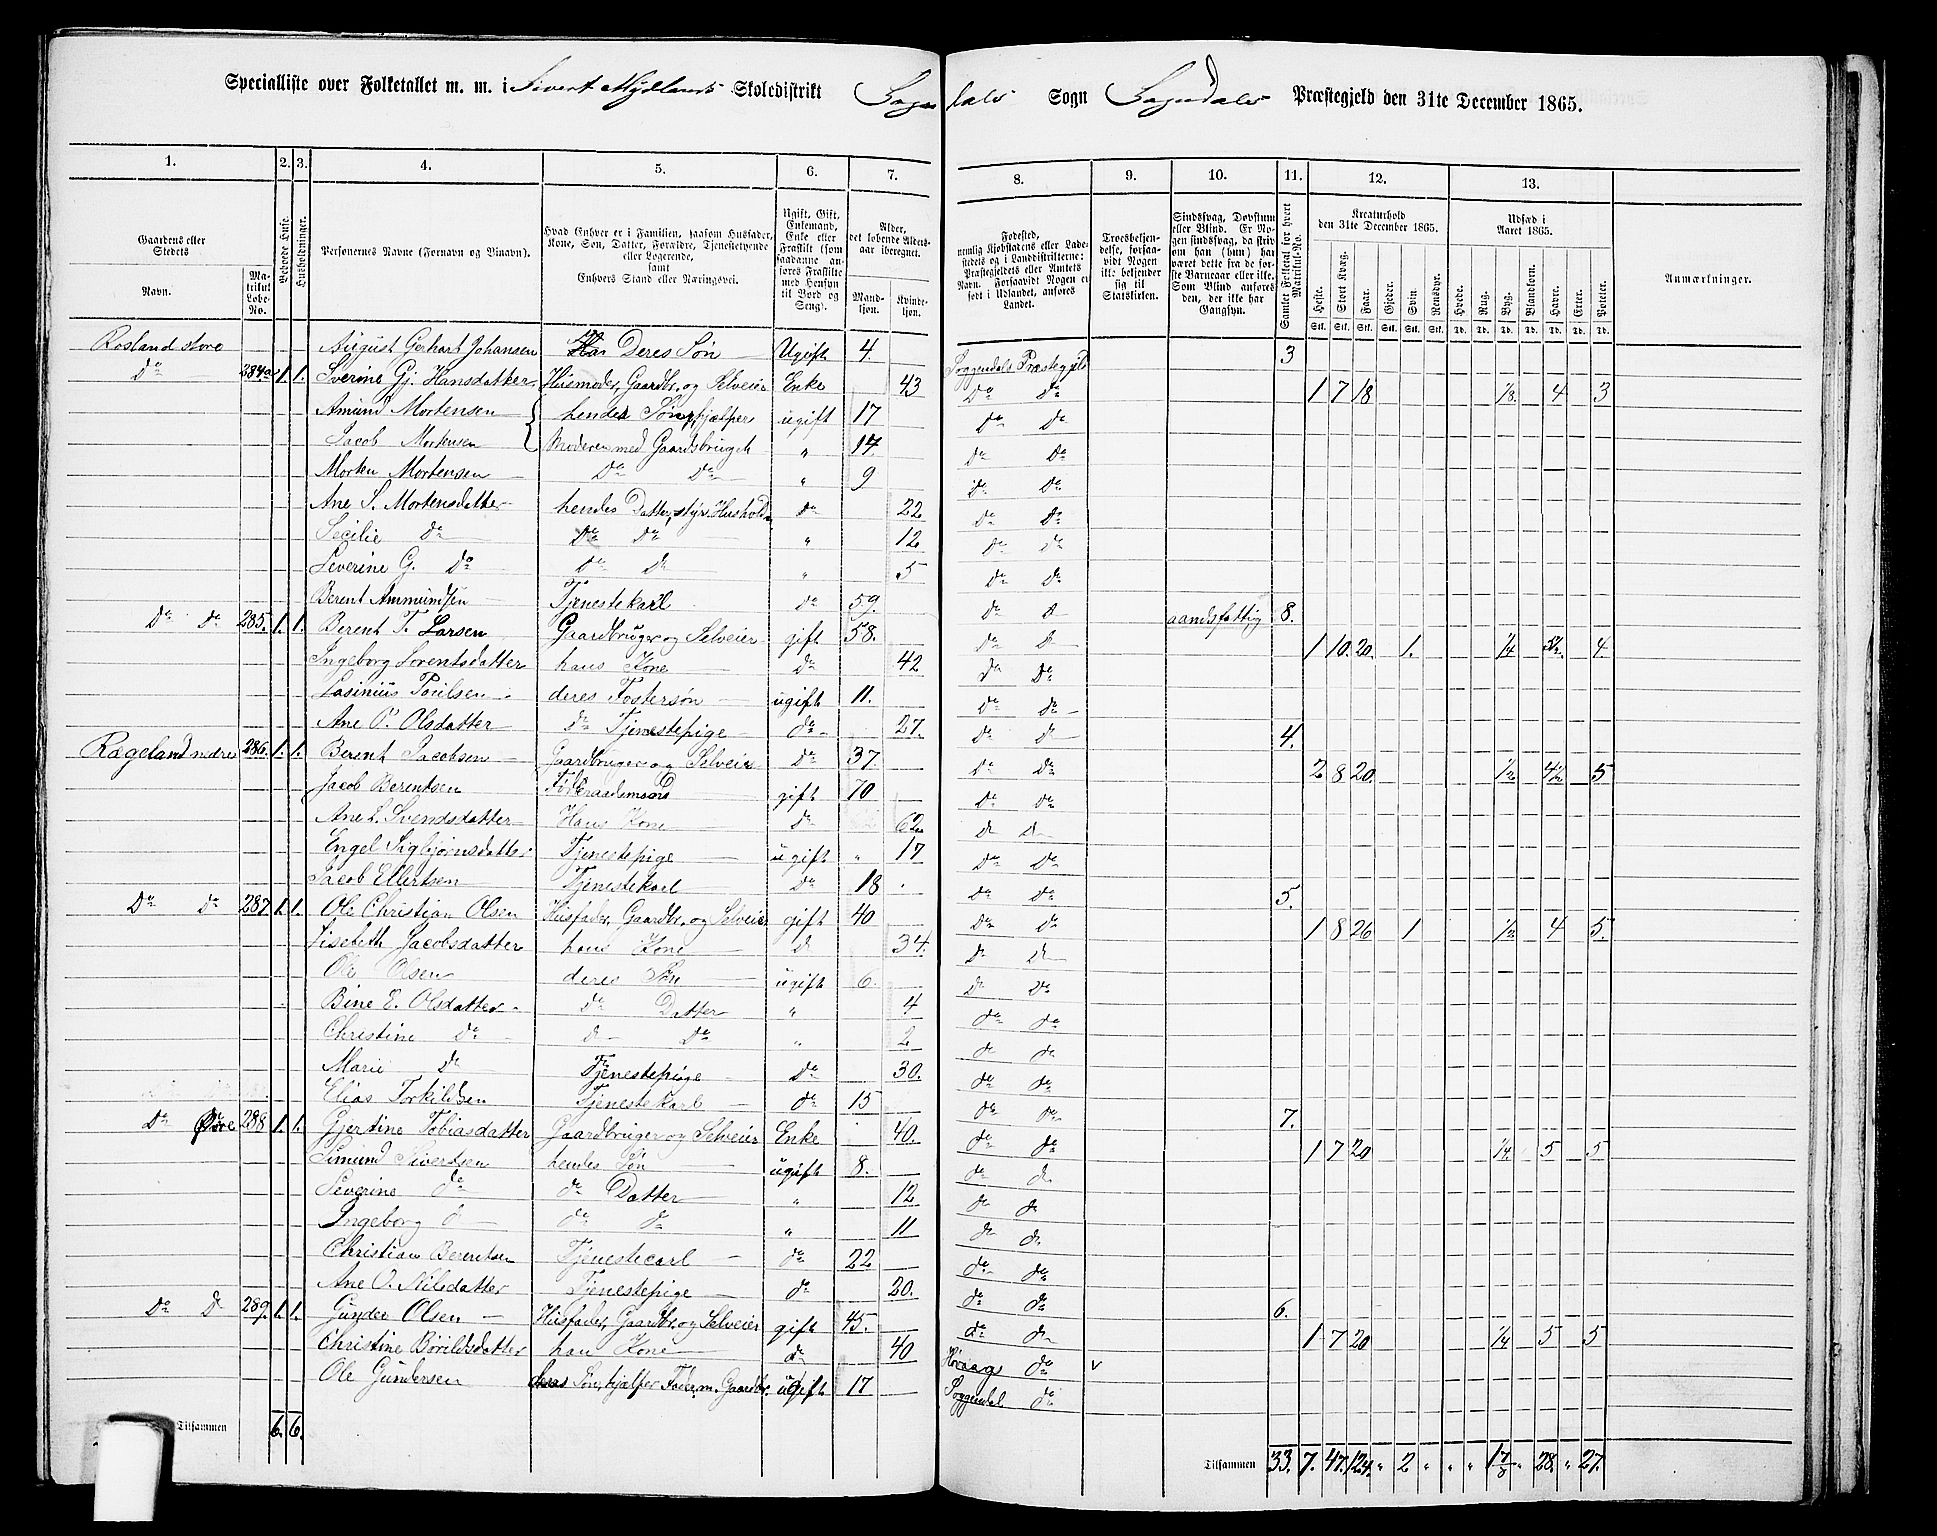 Specialliste over Folketallet m. m. i Sivert Mydlands Skoledistrikt Sogndals Sogn Sogndals Præstegjeld den 31te December 1865.
1. 2. 3. 4. 5. 6. 7. 8. 9. 10. 11. 12. 13.
Gaardens eller Stedets Navn. Matrikul Løbe-No. Beboede Huse. Husholdninger. Personernes Navne (Fornavn og Tilnavn). Hvad Enhver er i Familien, saasom Husfader, Kone, Søn, Datter, Forældre, Tjenestetyende eller Logerende, samt Enhvers Stand eller Næringsvei. Ugift, Gift, Enkemand, Enke eller Fraskilt Alder, det løbende Aldersaar iberegnet. Mandkjøn. Kvindekjøn. Fødested, Samlet Folketal for hvert Matrikul-No. Kreaturhold den 31te December 1865. Udsæd i Aaret 1865. Anmærkninger.
Heste. Stort Kvæg. Faar. Gjeder. Svin. Rensdyr. Hvede. Rug. Byg. Blandkorn. Havre. Erter. Poteter.
Rosland store August Gerhart Johansen Deres Søn Ugift 4. Soggendals Præstegjeld 3
Do 284a 1. 1. Sverine Gj. Hansdatter Husmoder, Gaardbr. og Selveier Enke 43 Do Do 1 7 18 1/8 4 3
Amund Mortensen hendes Søn, hjælper ugift 17 Do Do
Jacob Mortensen Moderen med Gaardsbruget " 14 Do Do
Morten Mortensen Do Do " 9 Do Do
Ane S. Mortensdatter hendes Datter, styr. Hushold. do 22 Do Do
Secilie do Do Do " 12 Do Do
Severine G. Do Do D " 5 Do Do
Berent Ammundsen Tjenestekarl do 59. Do D aandsfattig 8.
Do Do 285. 1. 1. Berent T. Larsen Gaardbruger og Selveier gift 58. Do D 1 10. 20. 1. 1/4 4.
Ingeborg Lorentsdatter hans Kone do 42 Do Do
Poulsen deres Fostersøn ugift 11. Do Do
Ane P. Olsdatter do Tjenestepige do 27. Do D 4.
Rægeland nedre 286. 1. 1. Berent Jacobsen Gaardbruger og Selveier Do 37. Do Do 2 8 20 1/2 4 1/2 5
Jacob Berentsen Føderaadsmand gift 70 Do Do
Ane L. Svendsdatter Hans Kone Do 62 D D
Engel Sigbjørnsdatter Tjenestepige ugift " 17 Do Do
Jacob Ellertsen Tjenestekarl Do 18 Do Do 5.
Do Do 287. 1. 1. Ole Christian Olsen Husfader, Gaardbr. og Selveier gift 40 Do Do 1 8 26 1 1/2 4 5.
Lisebeth Jacobsdatter hans Kone D 34. D D
Ole Olsen deres Søn ugift 6. D Do
Bine E. Olsdatter do Datter " 4 do do
Christine Do d Do " 2 do do
Marie Do Tjenestepige Do 30. do do
Elias Torkildsen Tjenestekarl do 15 do do 7.
Do Øvre 288 1. 1. Gjertine Tobiasdatter Gaardbruger og Selveier Enke 40. do do 1 7 20 1/4 5 5
Simund Sivertsen hendes Søn ugift 8. do do
Severine do do Datter " 12 do do
Ingeborg d do do " 11 do do
Christian Berentsen Tjenestecarl do 22 do do
Ane O. Nilsdatter Tjenestepige do 20. do do 6.
Do D 289. 1. 1. Gunder Olsen Husfader, Gaardbr. og Selveier gift 45. do do 1 7 20 1/4 5 5
Christine Børildsdatter han Kone do 40 do v
Ole Gundersen deres Søn, hjælper Fader m. Gaardbr. ugift 17 Soggendal do
Tilsammen 6. 6. Tilsammen 33. 7. 47. 124. " 2 " " " 17/8 " 28. " 27.